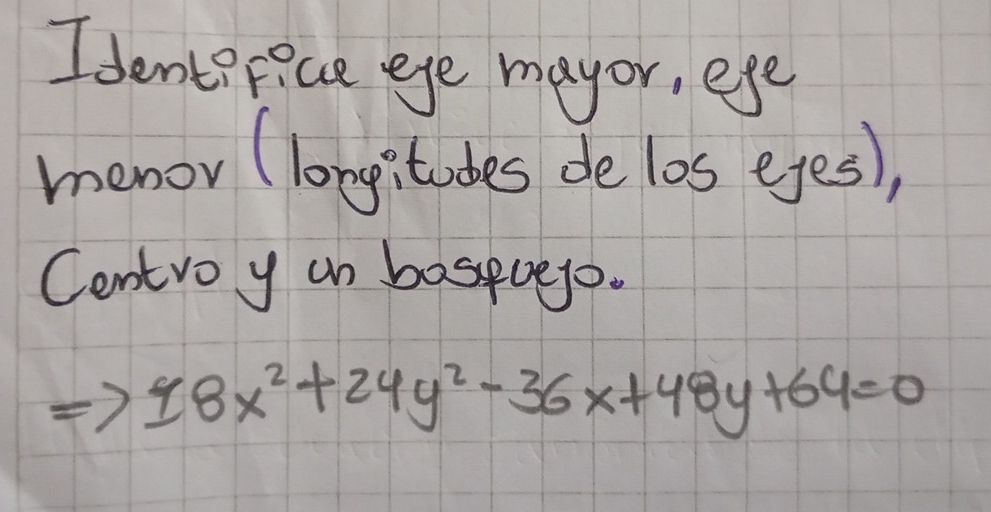 Identifica eje mayor, eje
menor (longitudes de los ejes),
Centro y un bosquejo.
=> 18x² + 24y² - 36x + 48y + 64 = 0